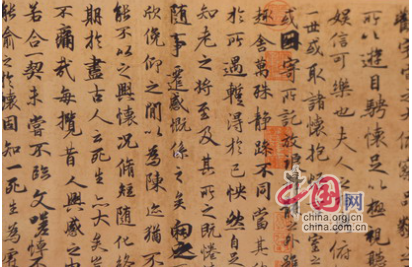 所以遊目騁懷足以極視聽
娛信可樂也夫人之俯
一世或取諸懷抱室之
或因寄所託放浪之外雖
趣舍萬殊靜躁不同當其
於所遇暫得於己怏然自足
知老之將至及其所之既惓
隨事遷感慨係之矣向之
欣俛仰之閒以為陳迹猶不
能不以之興懷況脩短隨化終
期於盡古人云死生亦大矣豈
不痛哉每攬昔人興感之由
若合一契未嘗不臨文嗟悼
能喻之於懷固知一死生為虛
中国网
china.org.cn
china.com.cn